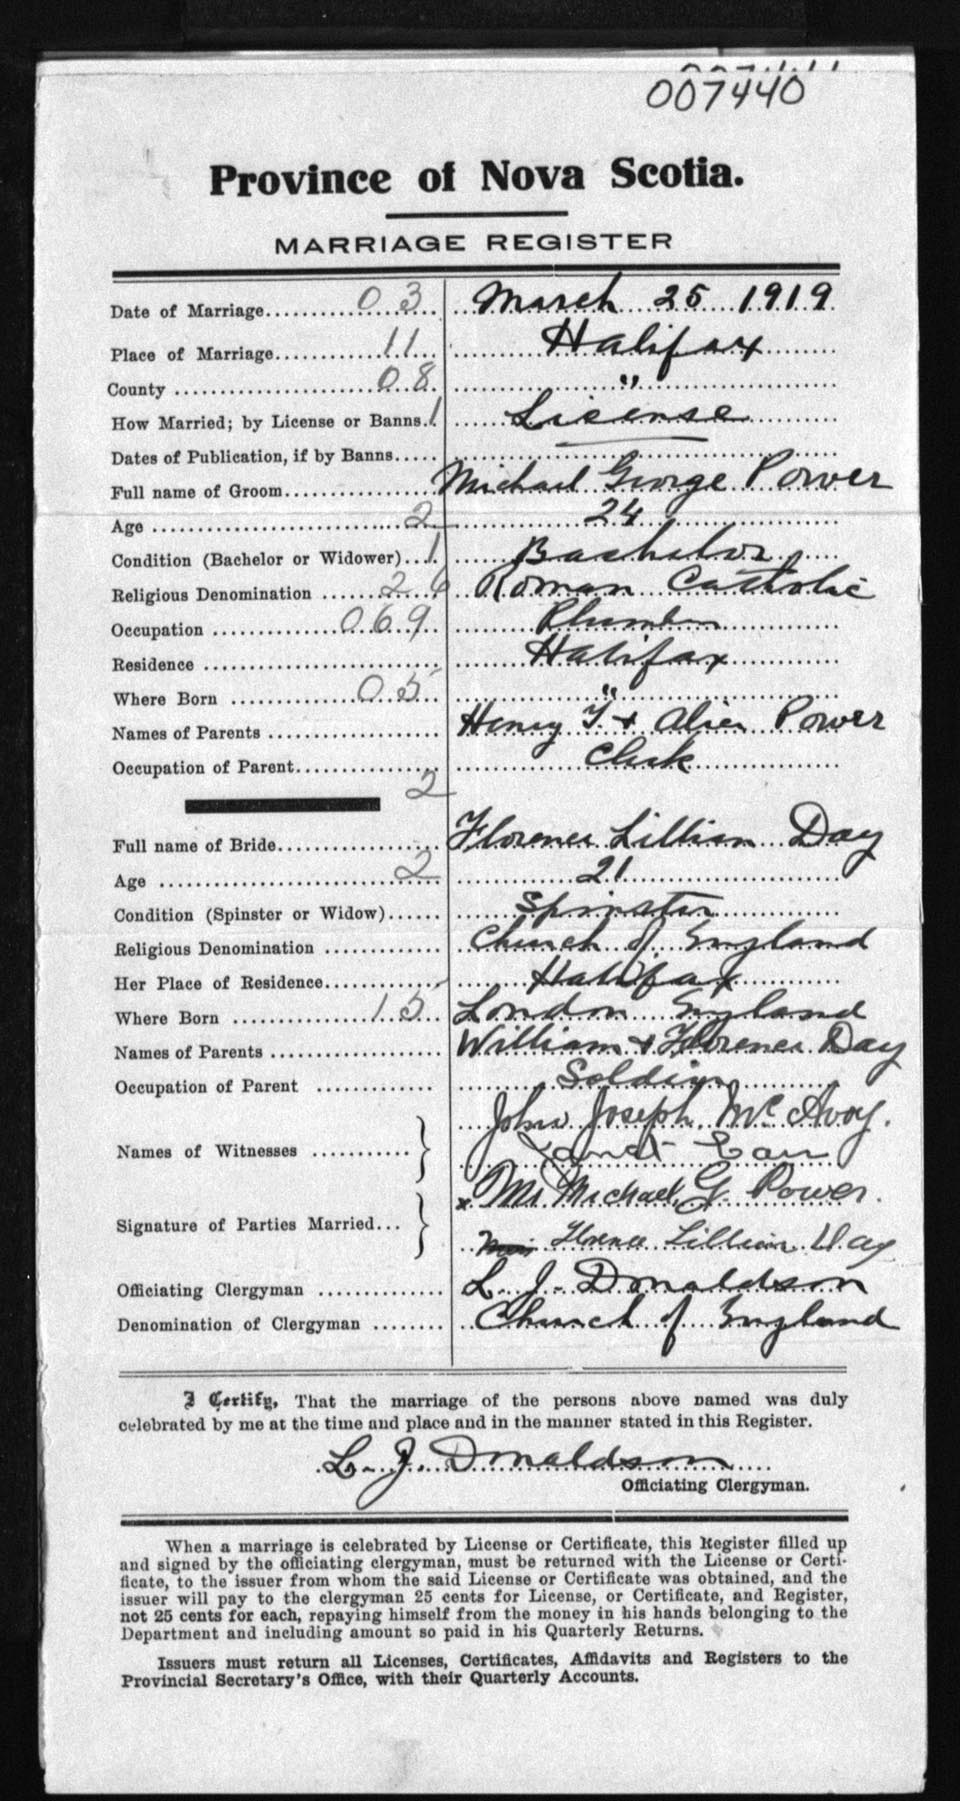 007440
Province of Nova Scotia.
MARRIAGE REGISTER
Date of Marriage 03 March 25 1919
Place of Marriage 11 Halifax
County 08 "
How Married; by License or Banns. 1 License
Dates of Publication, if by Banns
Full name of Groom Michael George Power
Age 2 24
Condition (Bachelor or Widower) 1 Bachelor
Religious Denomination 26 Roman Catholic
Occupation 069 Plumber
Residence Halifax
Where Born 05 "
Names of Parents Henry + Alice Power
Occupation of Parent Clerk
2
Full name of Bride Florence Lillian Day
Age 2 21
Condition (Spinster or Widow) Spinster
Religious Denomination Church of England
Her Place of Residence Halifax
Where Born 15 London England
Names of Parents William + Florence Day
Occupation of Parent Soldier
John Joseph McAvoy.
Names of Witnesses Janet
x Mr Michael G Power.
Signature of Parties Married
Florence Lillian Day
Officiating Clergyman L. J. Donaldson
Denomination of Clergyman Church of England
I Certify, That the marriage of the persons above named was duly
celebrated by me at the time and place and in the manner stated in this Register.
L. J. Donaldson
Officiating Clergyman.
When a marriage is celebrated by License or Certificate, this Register filled up
and signed by the officiating clergyman, must be returned with the License or Certi-
ficate, to the issuer from whom the said License or Certificate was obtained, and the
issuer will pay to the clergyman 25 cents for License, or Certificate, and Register,
not 25 cents for each, repaying himself from the money in his hands belonging to the
Department and including amount so paid in his Quarterly Returns.
Issuers must return all Licenses, Certificates, Affidavits and Registers to the
Provincial Secretary's Office, with their Quarterly Accounts.